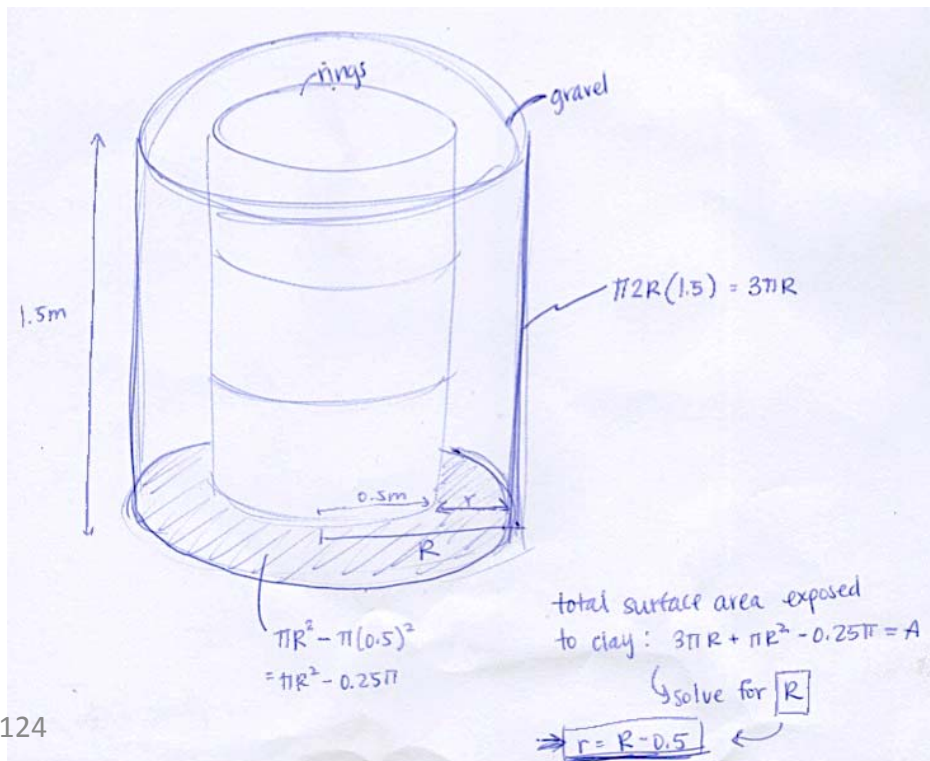 rings
gravel
1.5m
π2R(1.5) = 3πR
0.5m
r
R
πR² - π(0.5)²
= πR² - 0.25π
total surface area exposed
to clay: 3πR + πR² - 0.25π = A
↳ solve for R
→ r = R - 0.5 ←
124